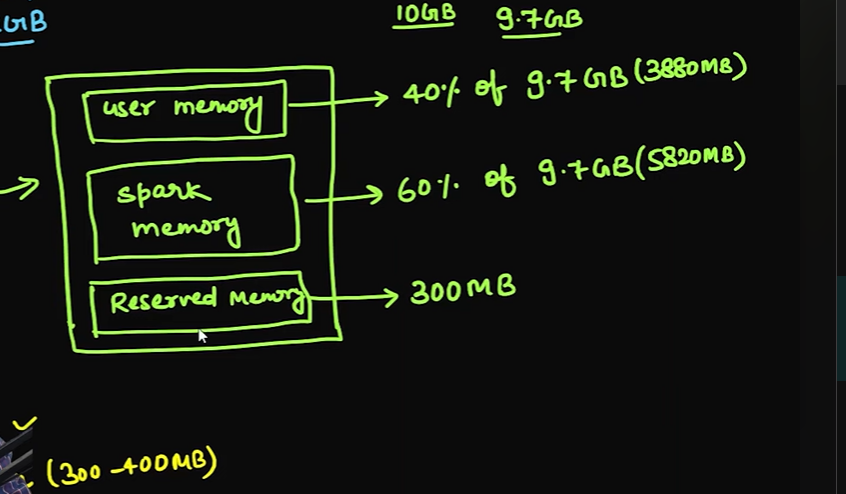 GB
10GB 9.7GB
user memory → 40% of 9.7GB (3880MB)
spark
memory → 60% of 9.7GB (5820MB)
Reserved Memory → 300MB
(300-400MB)